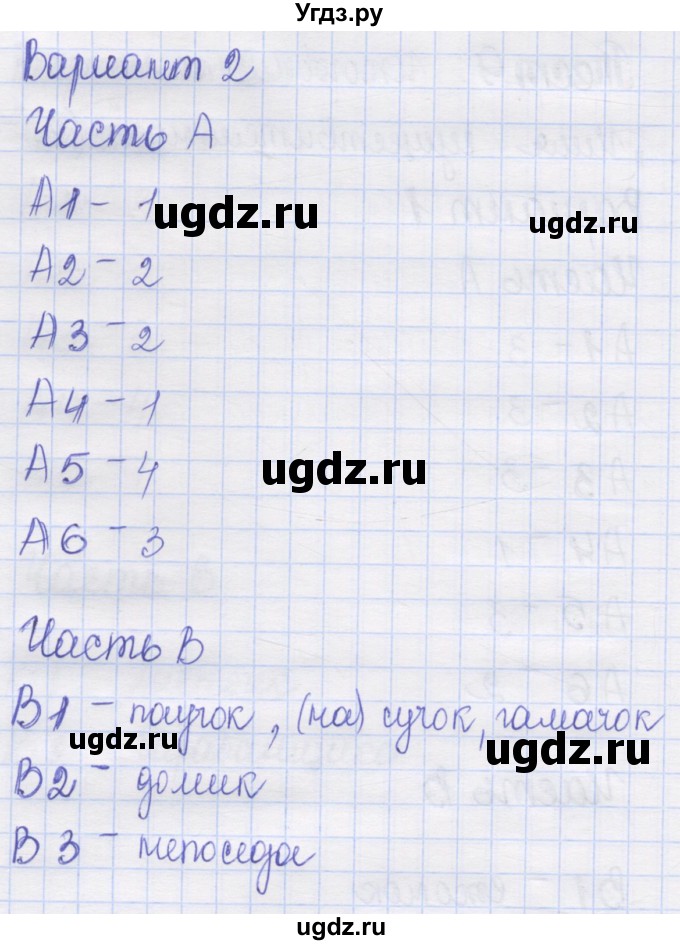 Угдз.ру
Вариант 2
Часть А
А1 - 1
ugdz.ru
А2 - 2
А3 - 2
А4 - 1
А5 - 4
ugdz.ru
А6 - 3
Часть В
В1 - паучок, (на) сучок, гамачок
ugdz.ru
ugdz.ru
В2 - домик
В3 - непоседа
ugdz.ru